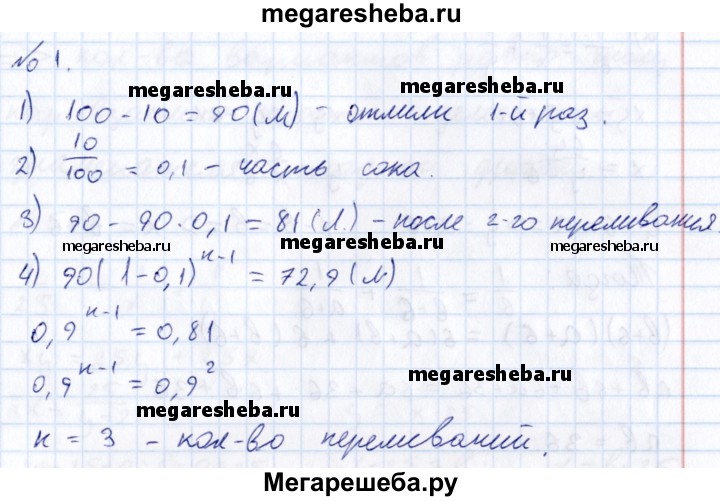 megaresheba.ru
№ 1.
megaresheba.ru megaresheba.ru
1) 100 - 10 = 90 (л) - отлили 1-й раз.
2) 10/100 = 0,1 - часть сока.
3) 90 - 90·0,1 = 81 (л.) - после 2-го переливания.
megaresheba.ru megaresheba.ru megaresheba.ru
4) 90(1-0,1)^(n-1) = 72,9 (л)
0,9^(n-1) = 0,81
megaresheba.ru
0,9^(n-1) = 0,9^2
megaresheba.ru
n = 3 - кол-во переливаний.
Мегарешеба.ру